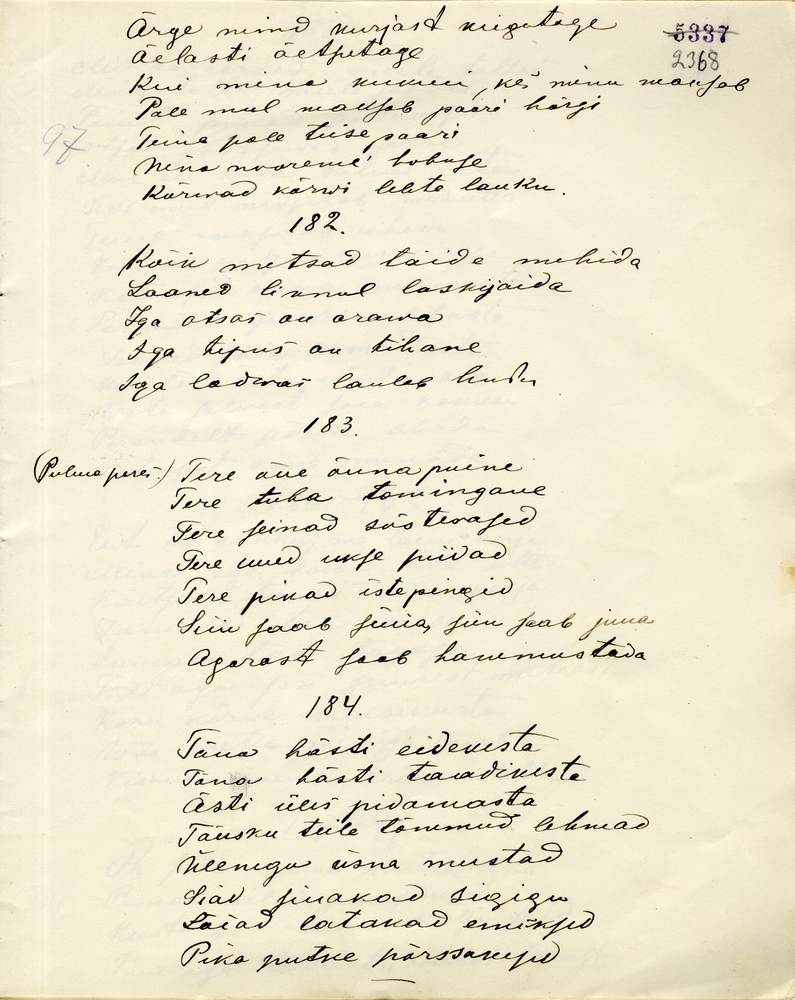 5337
2368
Ärge mind kurjast kiigutage
Äelasti äetsetage
Kui mina kukun, kes minu maksab
Pale mul maksab paari härgi
97
Teine pale teise paari
Nina nooreme' hobuse
Körwad körwi lehte lauku.
182.
Köik metsad täide mehida
Laaned linnul laskijaida
Iga otsas on orawa
Iga tipus on tihane
Iga ladwas laulab
183.
(Pulma peres.) Tere öue öunapuine
Tere tuba toomingane
Tere seinad sösterased
Tere uued ukse piidad
Tere pikad istepingid
Siin saab süüa, siin saab juua
Agarast saab hammustada
184.
Tänu hästi eidekesta
Tänu hästi taadikesta
Ästi üles pidamasta
Täusku teile tömmud lehmad
Üleenigu üsna mustad
Siad sinakad sigigu
Laiad latakad emiksed
Pika putke pörssakesed